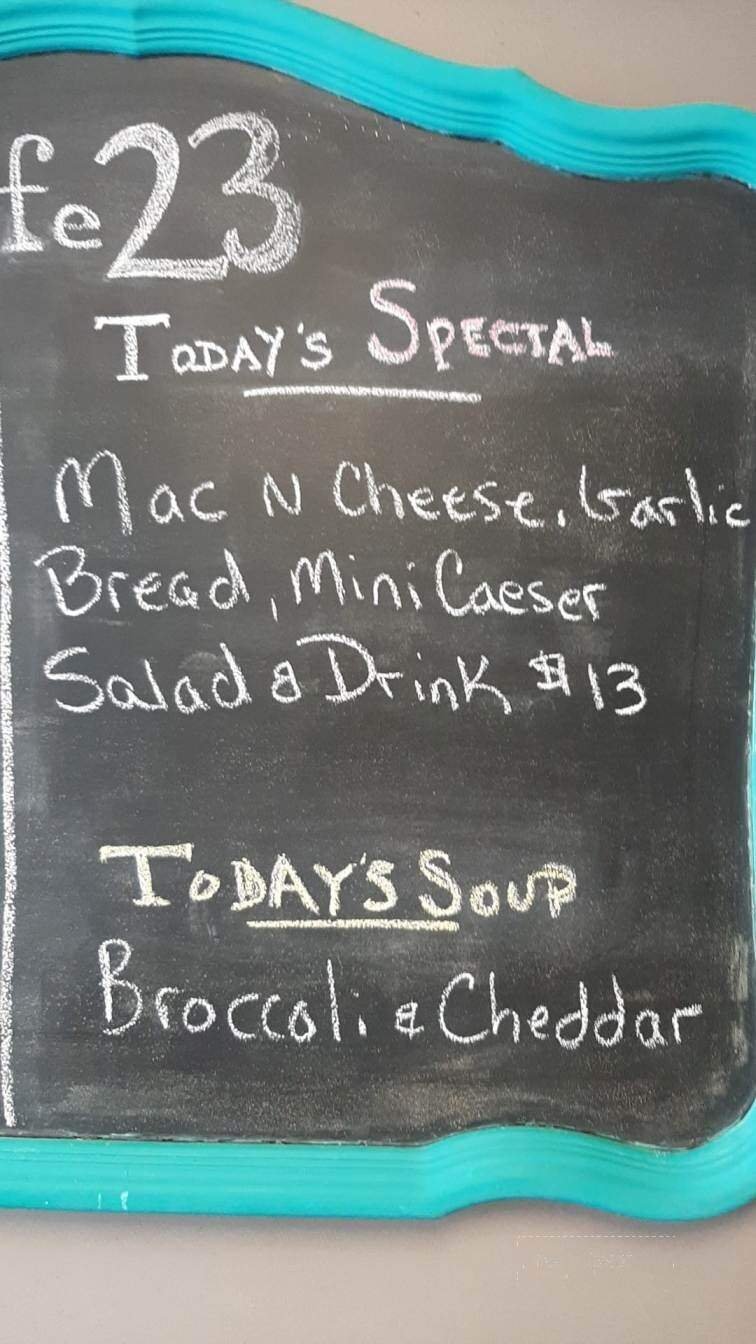 fe 23
TODAY'S SPECIAL
Mac N Cheese, Garlic
Bread, Mini Caeser
Salad & Drink $13
TODAY'S SOUP
Broccoli & Cheddar